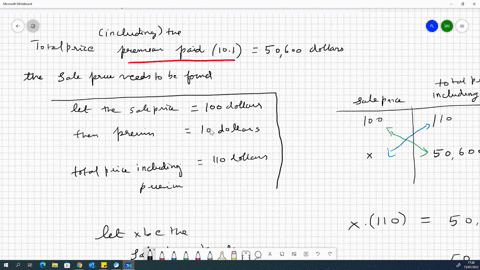 Microsoft Whiteboard
(including) the
Total price premium paid (10.1) = 50,600 dollars
the Sale price needs to be found
let the sale price = 100 dollars
then premium = 10 dollars
total price including premium = 110 dollars
Sale price
total pri
including
100 110
x 50,600
x.(110) = 50,
let x be the